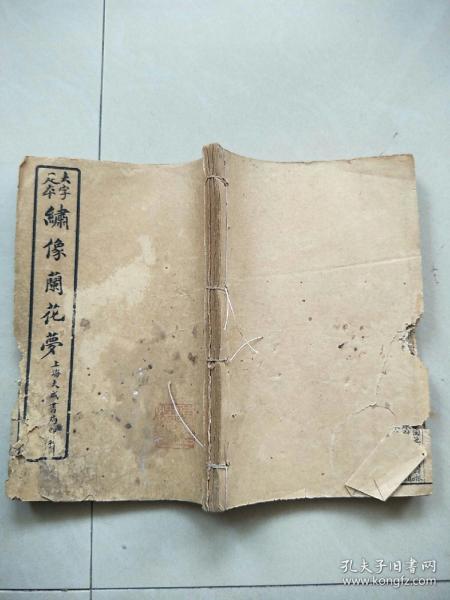 大字
足本
繡像蘭花夢
上海大成書局印行
孔夫子旧书网
www.kongfz.com